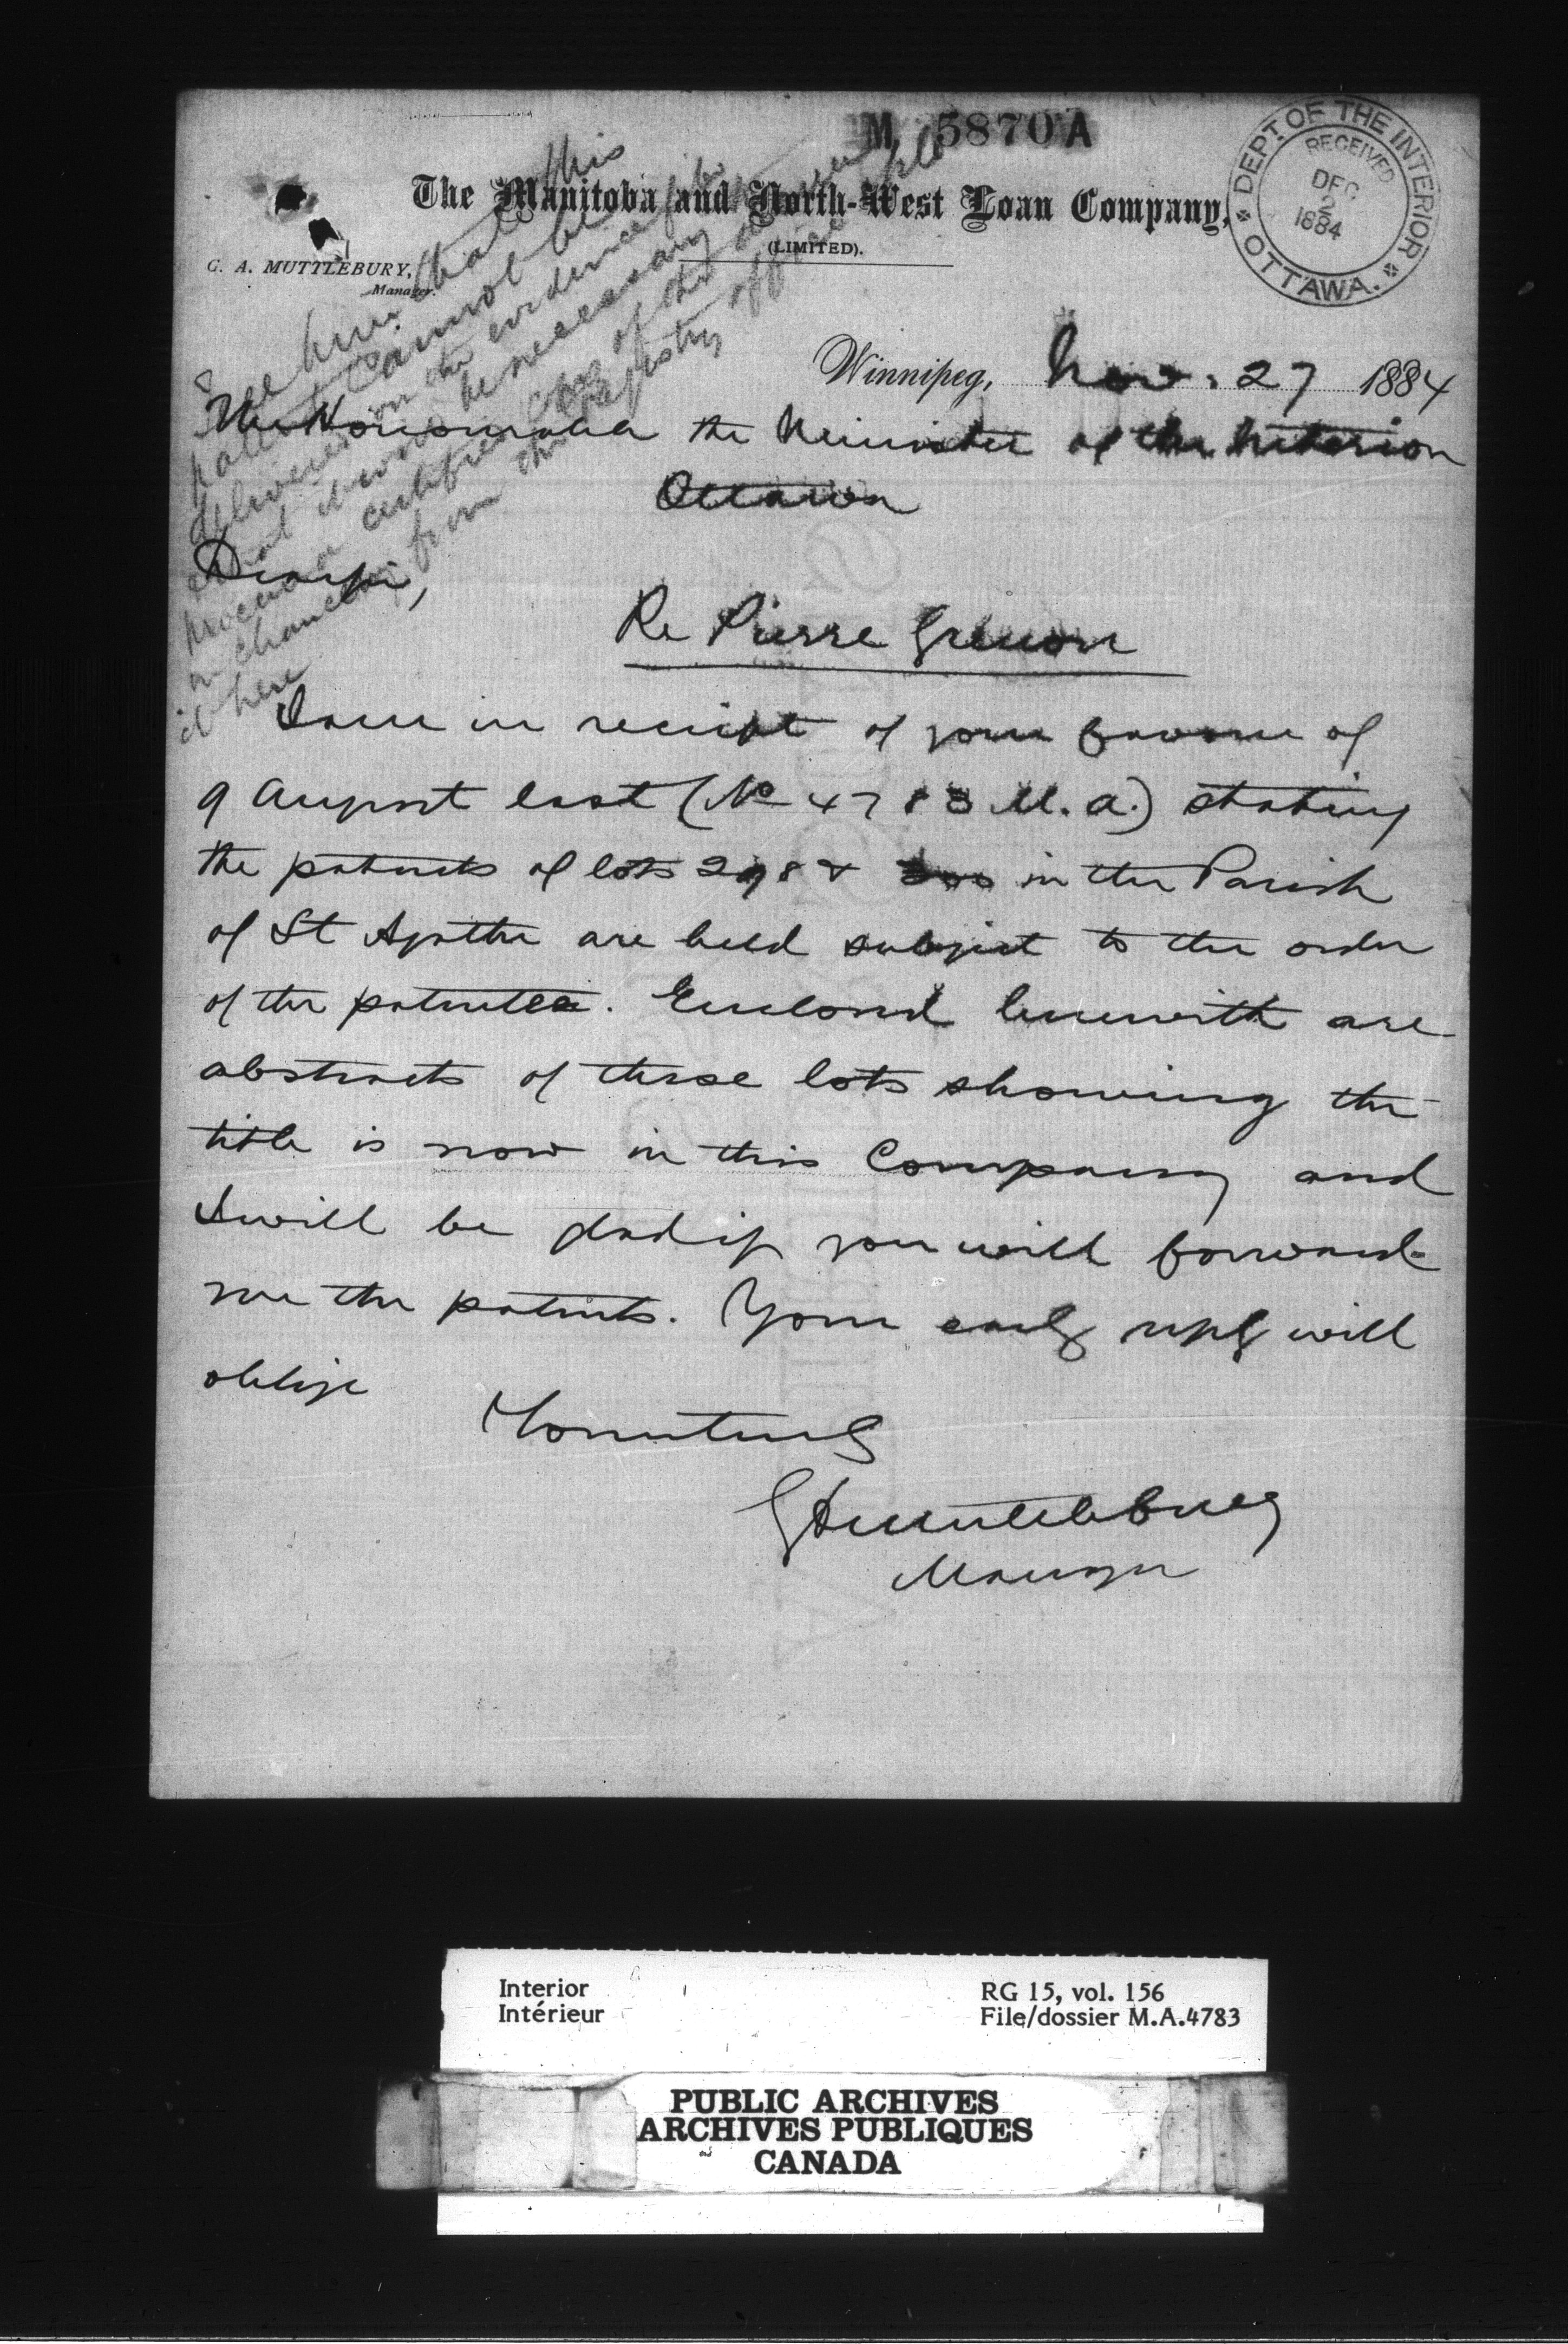 M 5870 A
DEPT. OF THE INTERIOR
RECEIVED
DEC
2
1884
OTTAWA.
The Manitoba and North-West Loan Company,
(LIMITED).
G. A. MUTTLEBURY,
Manager.
Winnipeg, Nov. 27 1884
The Honourable the Minister of the Interior
Ottawa
Dear Sir,
Re Pierre Grenon
I am in receipt of your favour of
9 August last (No 4783 M. A.) stating
the patents of lots 298 & 300 in the Parish
of St Agathe are held subject to the order
of the patentee. Enclosed herewith are
abstracts of these lots showing the
title is now in this Company and
I will be glad if you will forward
me the patents. Your early reply will
oblige
Yours truly
G A Muttlebury
Manager
that this
patent cannot be
delivered on the evidence
that it would be necessary
procure a certified copy of the
in chancery from the registry office
it here
Interior
Intérieur
RG 15, vol. 156
File/dossier M.A.4783
PUBLIC ARCHIVES
ARCHIVES PUBLIQUES
CANADA